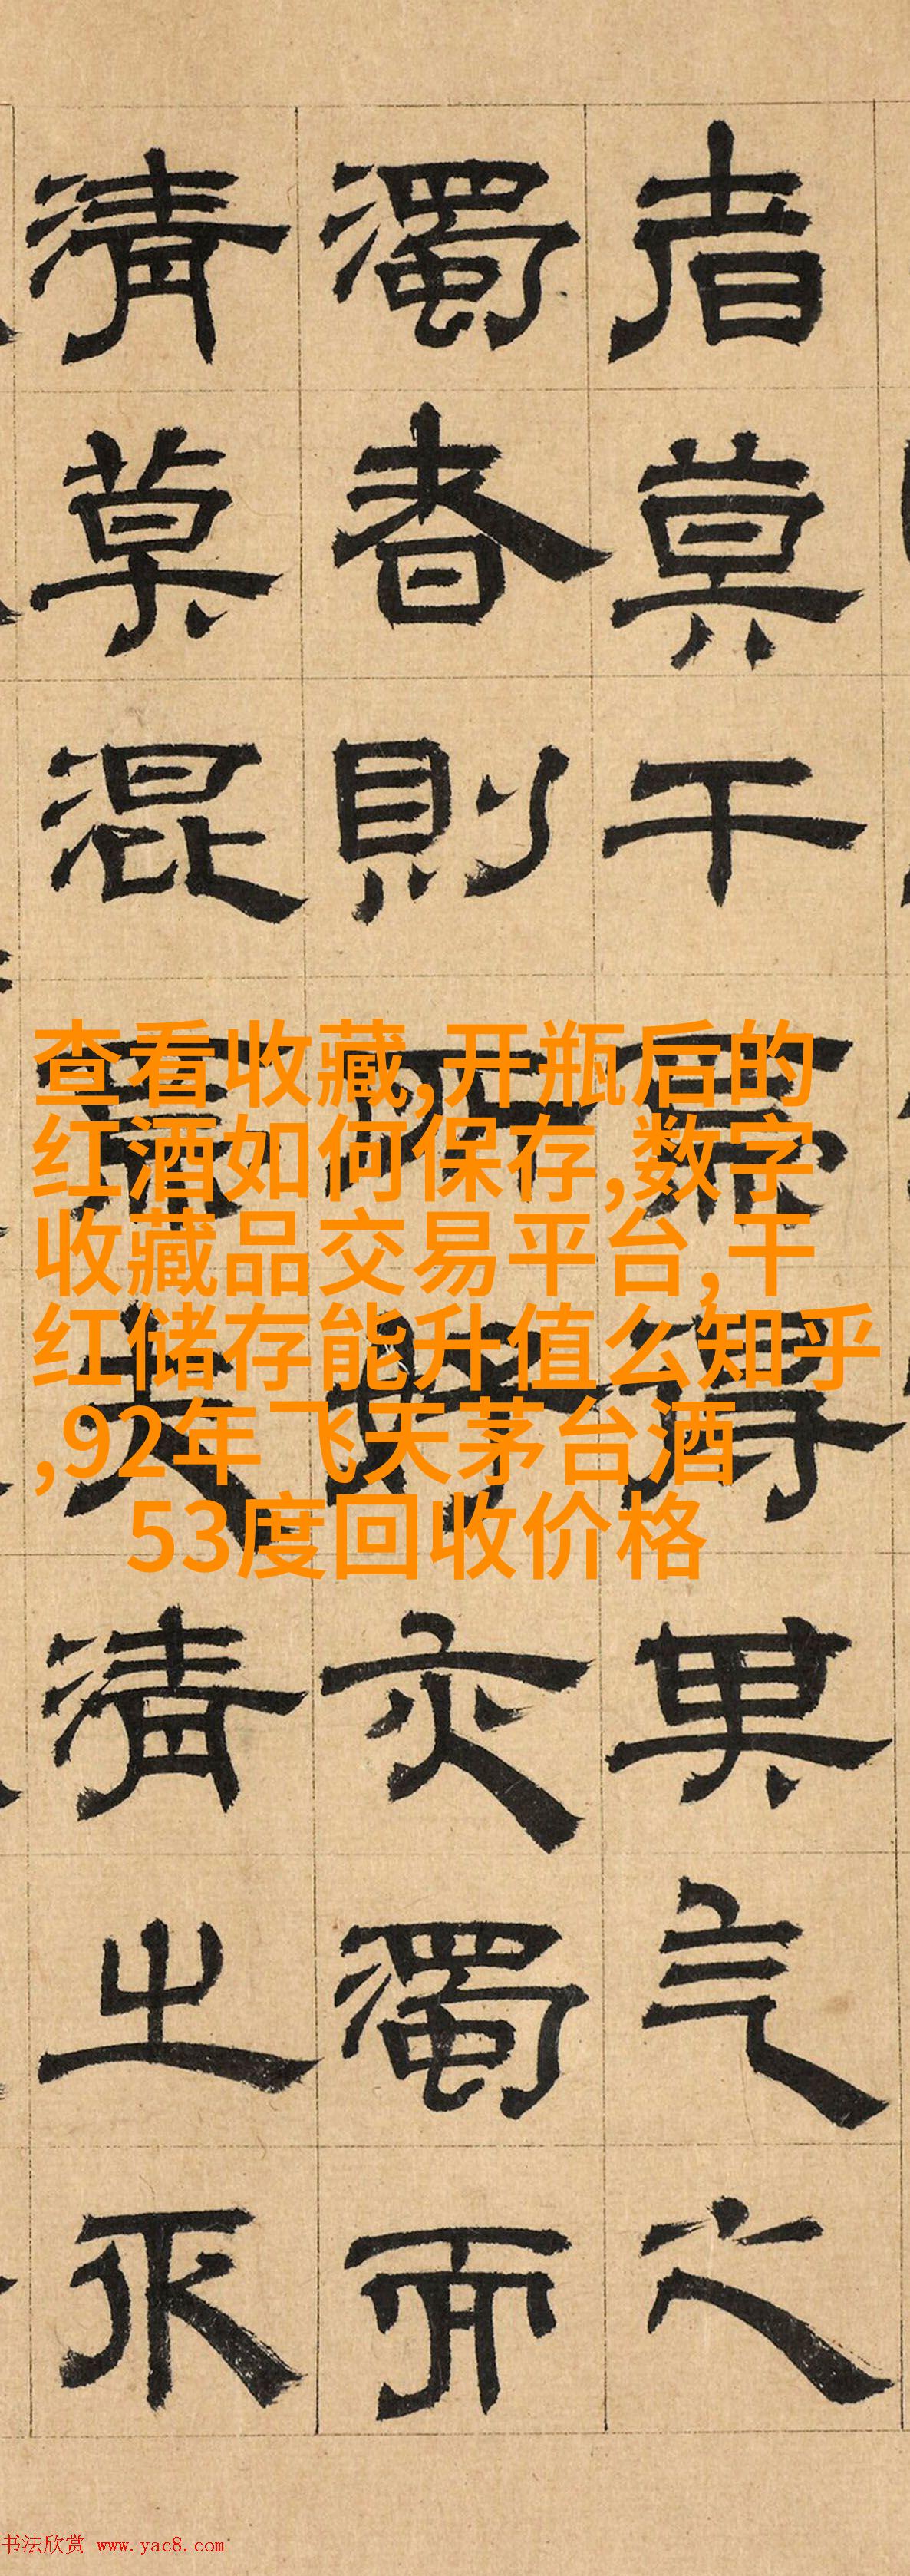 者莫干得其气之
濁者則所亦濁而
清莫混清之
查看收藏,开瓶后的
红酒如何保存,数字
收藏品交易平台,干
红储存能升值么知乎
,92年飞天茅台酒
53度回收价格
书法欣赏 www.yac8.com